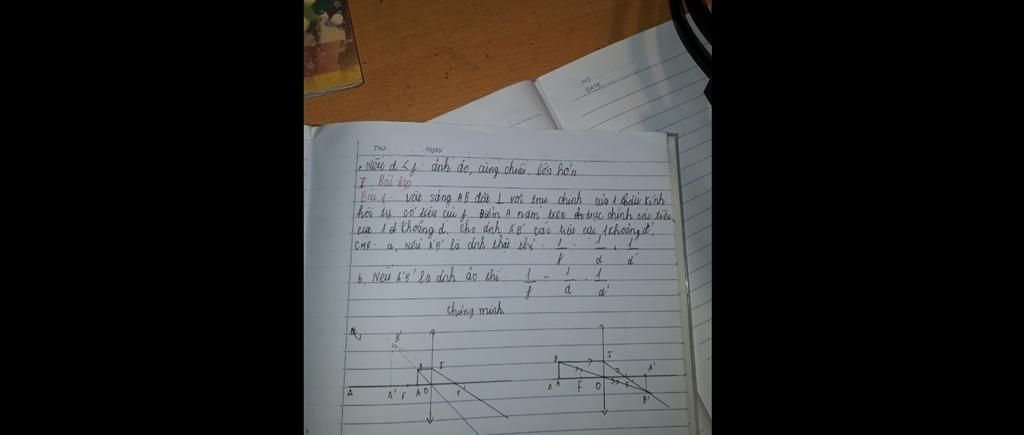 NO
DATE
Thứ Ngày
. Nếu d < f : ảnh ảo, cùng chiều, lớn hơn
I Bài tập
Bài 1: Vật sáng AB đặt ⊥ với trục chính của 1 thấu kính
hội tụ có tiêu cự f. Điểm A nằm trên trục chính
1 khoảng d. Cho ảnh A'B' 1 khoảng d'.
CMR: a, Nếu A'B' là ảnh thật thì 1/f 1/d 1/d'
b, Nếu A'B' là ảnh ảo thì 1/f = 1/d - 1/d'
Chứng minh
B' I
Δ A' F A O F'
B I A'
Δ A F O F'
B'